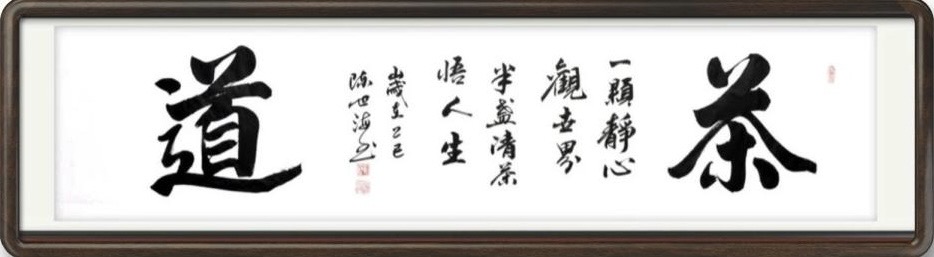 茶
一顆靜心
觀世界
半盞清茶
悟人生
歲在乙巳
陳世海书
道